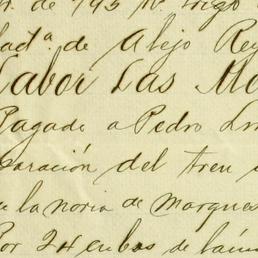 de 795 N. Trigo
fact.ª de Alejo Rey
Labor Las Mo
Pagado a Pedro Lu
paración del tren
la noria de Marques
Por 24 cubos de lámi